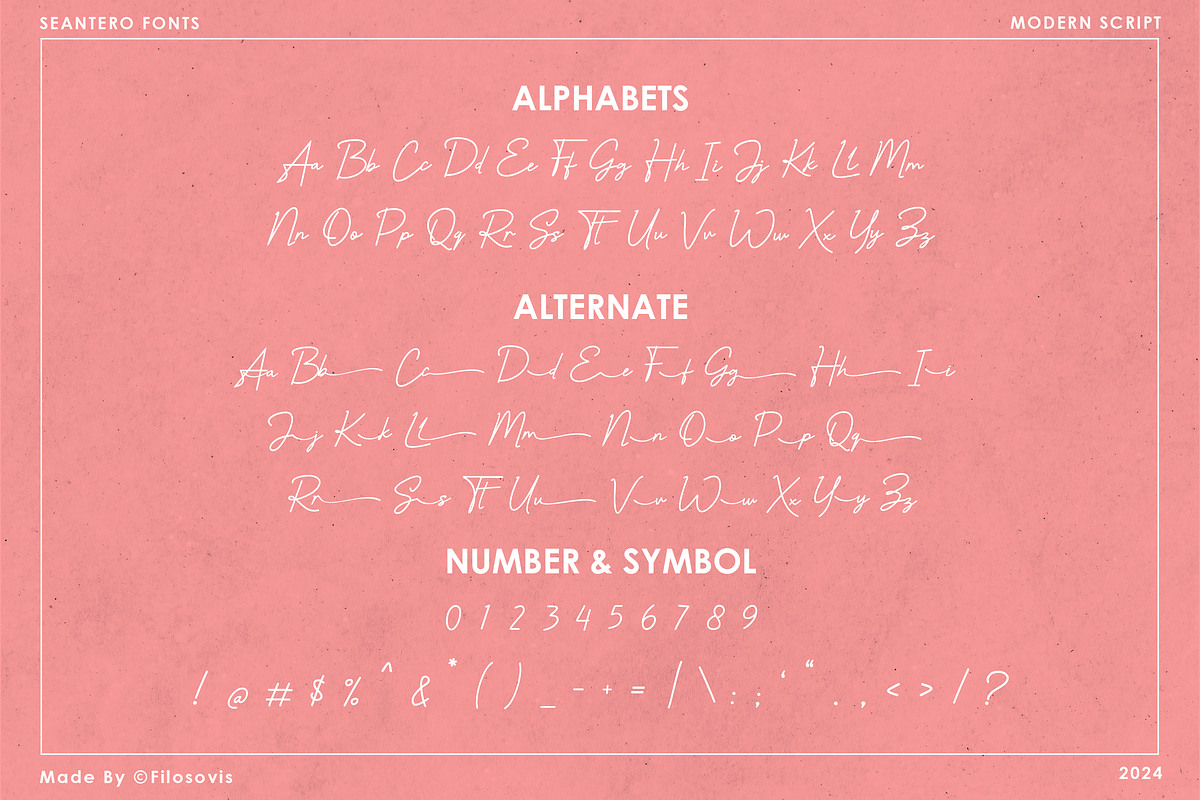 SEANTERO FONTS
MODERN SCRIPT
ALPHABETS
Aa Bb Cc Dd Ee Ff Gg Hh Ii Jj Kk Ll Mm
Nn Oo Pp Qq Rr Ss Tt Uu Vv Ww Xx Yy Zz
ALTERNATE
Aa Bb Cc Dd Ee Ff Gg Hh Ii
Jj Kk Ll Mm Nn Oo Pp Qq
Rr Ss Tt Uu Vv Ww Xx Yy Zz
NUMBER & SYMBOL
0 1 2 3 4 5 6 7 8 9
! @ # $ % ^ & * ( ) _ - + = | \ : ; ‘ “ . , < > / ?
Made By ©Filosovis
2024